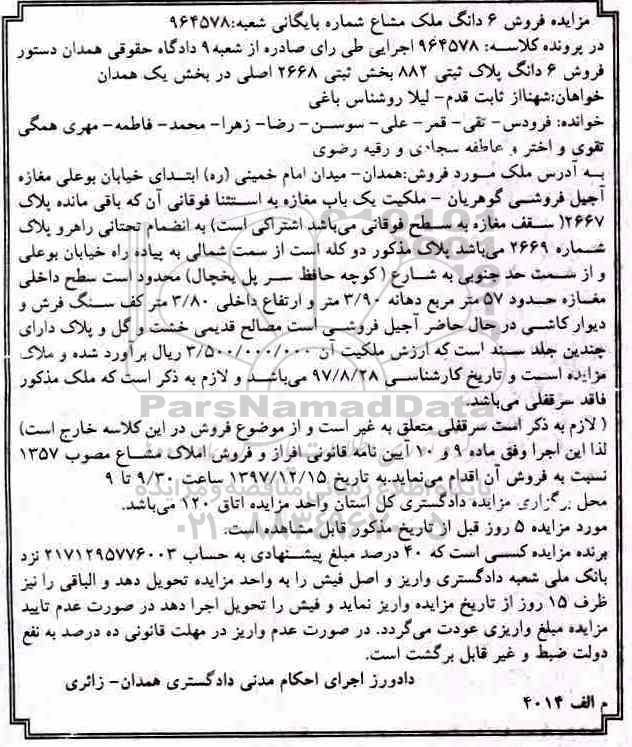 مزایده فروش ۶ دانگ ملک مشاع شماره بایگانی شعبه:۹۶۴۵۷۸
در پرونده کلاسه: ۹۶۴۵۷۸ اجرایی طی رای صادره از شعبه ۹ دادگاه حقوقی همدان دستور
فروش ۶ دانگ پلاک ثبتی ۸۸۲ بخش ثبتی ۲۶۶۸ اصلی در بخش یک همدان
خواهان:شهناز ثابت قدم- لیلا روشناس باغی
خوانده: فرودس- تقی- قمر- علی- سوسن- رضا- زهرا- محمد- فاطمه- مهری همگی
تقوی و اختر و عاطفه سجادی و رقیه رضوی
به آدرس ملک مورد فروش:همدان- میدان امام خمینی (ره) ابتدای خیابان بوعلی مغازه
آجیل فروشی گوهریان - ملکیت یک باب مغازه به استثنا فوقانی آن که باقی مانده پلاک
۲۶۶۷( سقف مغازه به سطح فوقانی می‌باشد اشتراکی است) به انضمام تحتانی راهرو پلاک
شماره ۲۶۶۹ می‌باشد پلاک مذکور دو کله است از سمت شمالی به پیاده راه خیابان بوعلی
و از سمت حد جنوبی به شارع (کوچه حافظ سر پل یخچال) محدود است سطح داخلی
مغازه حدود ۵۷ متر مربع دهانه ۳/۹۰ متر و ارتفاع داخلی ۳/۸۰ متر کف سنگ فرش و
دیوار کاشی در حال حاضر آجیل فروشی است مصالح قدیمی خشت و گل و پلاک دارای
چندین جلد سند است که ارزش ملکیت آن ۳/۵۰۰/۰۰۰/۰۰۰ ریال برآورد شده و ملاک
مزایده است و تاریخ کارشناسی ۹۷/۸/۲۸ می‌باشد و لازم به ذکر است که ملک مذکور
فاقد سرقفلی می‌باشد.
ParsNamadData
( لازم به ذکر است سرقفلی متعلق به غیر است و از موضوع فروش در این کلاسه خارج است)
لذا این اجرا وفق ماده ۹ و ۱۰ آیین نامه قانونی افراز و فروش املاک مشاع مصوب ۱۳۵۷
نسبت به فروش آن اقدام می‌نماید.به تاریخ ۱۳۹۷/۱۲/۱۵ ساعت ۹/۳۰ تا ۹
محل برگزاری مزایده دادگستری کل استان واحد مزایده اتاق ۱۲۰ می‌باشد.
مورد مزایده ۵ روز قبل از تاریخ مذکور قابل مشاهده است.
برنده مزایده کسی است که ۴۰ درصد مبلغ پیشنهادی به حساب ۲۱۷۱۲۹۵۷۷۶۰۰۳ نزد
بانک ملی شعبه دادگستری واریز و اصل فیش را به واحد مزایده تحویل دهد و الباقی را نیز
ظرف ۱۵ روز از تاریخ مزایده واریز نماید و فیش را تحویل اجرا دهد در صورت عدم تایید
مزایده مبلغ واریزی عودت می‌گردد. در صورت عدم واریز در مهلت قانونی ده درصد به نفع
دولت ضبط و غیر قابل برگشت است.
دادورز اجرای احکام مدنی دادگستری همدان- زائری
م الف ۴۰۱۴